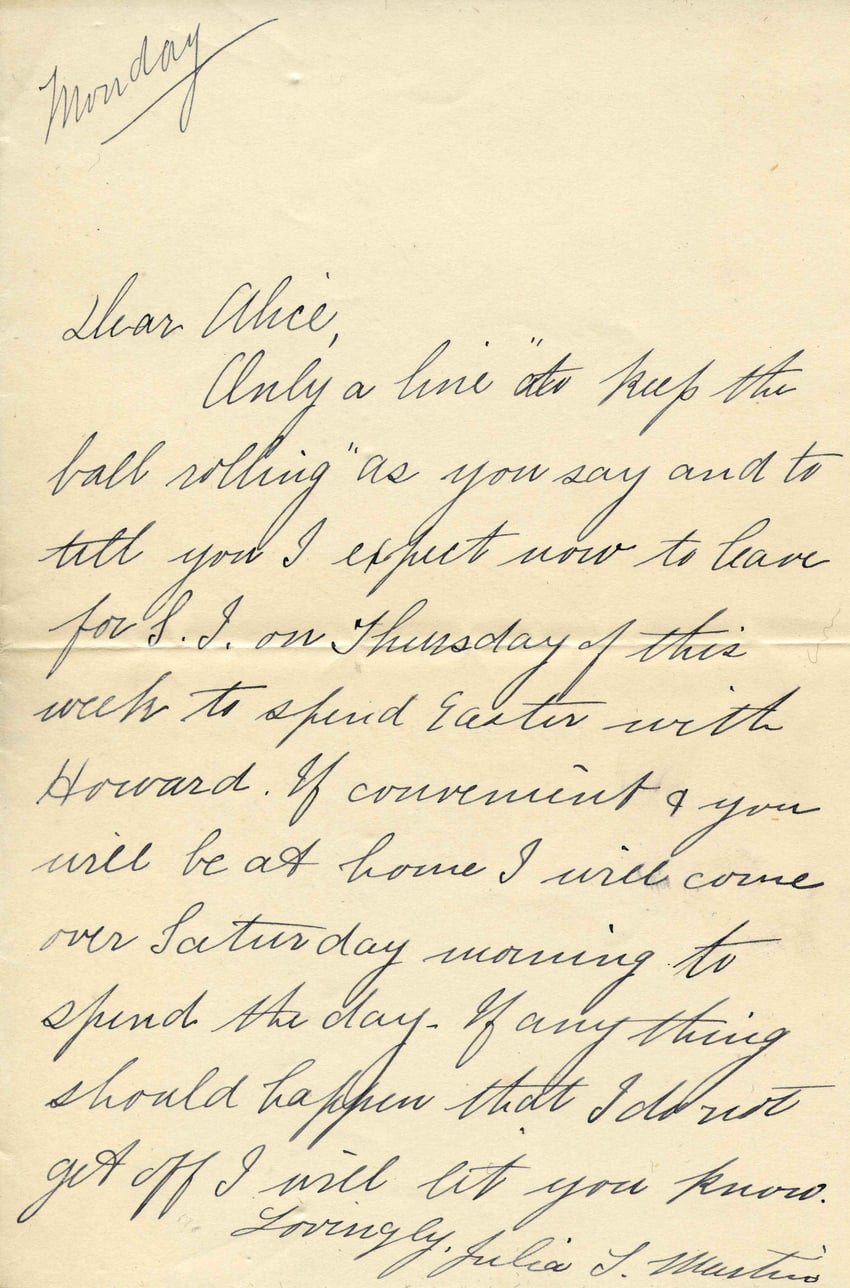 Monday
Dear Alice,
Only a line "to keep the
ball rolling" as you say and to
tell you I expect now to leave
for S. I. on Thursday of this
week to spend Easter with
Howard. If convenient & you
will be at home I will come
over Saturday morning to
spend the day. If anything
should happen that I do not
get off I will let you know.
Lovingly, Julia S. Martin